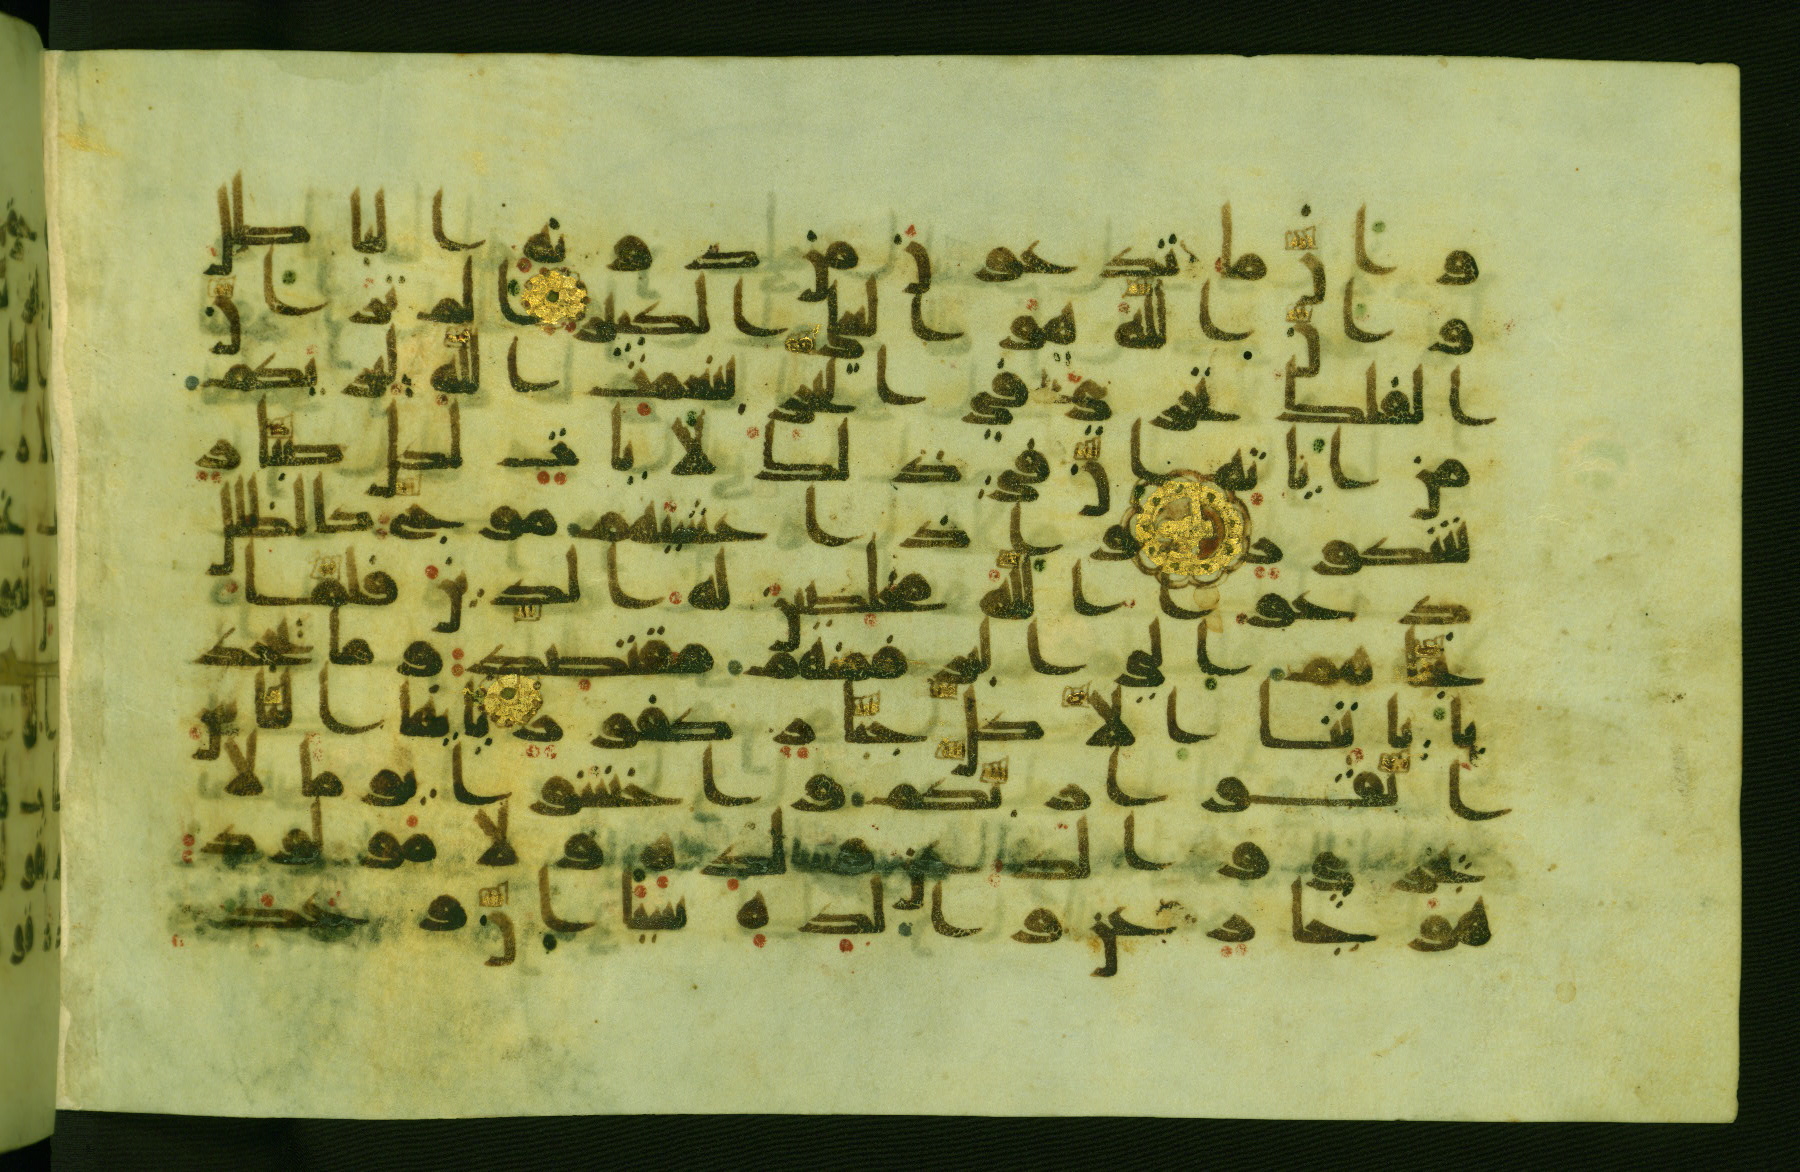 وان ما تدعون من دونه الباطل
وان الله هو العلي الكبير الم تر ان
الفلك تجري في البحر بنعمت الله ليريكم
من اياته ان في ذلك لايات لكل صبار
شكور واذا غشيهم موج كالظلل
دعوا الله مخلصين له الدين فلما
نجاهم الى البر فمنهم مقتصد وما يجحد
باياتنا الا كل ختار كفور يايها الناس
اتقوا ربكم واخشوا يوما لا
يجزي والد عن ولده ولا مولود
هو جاز عن والده شيئا ان وعد